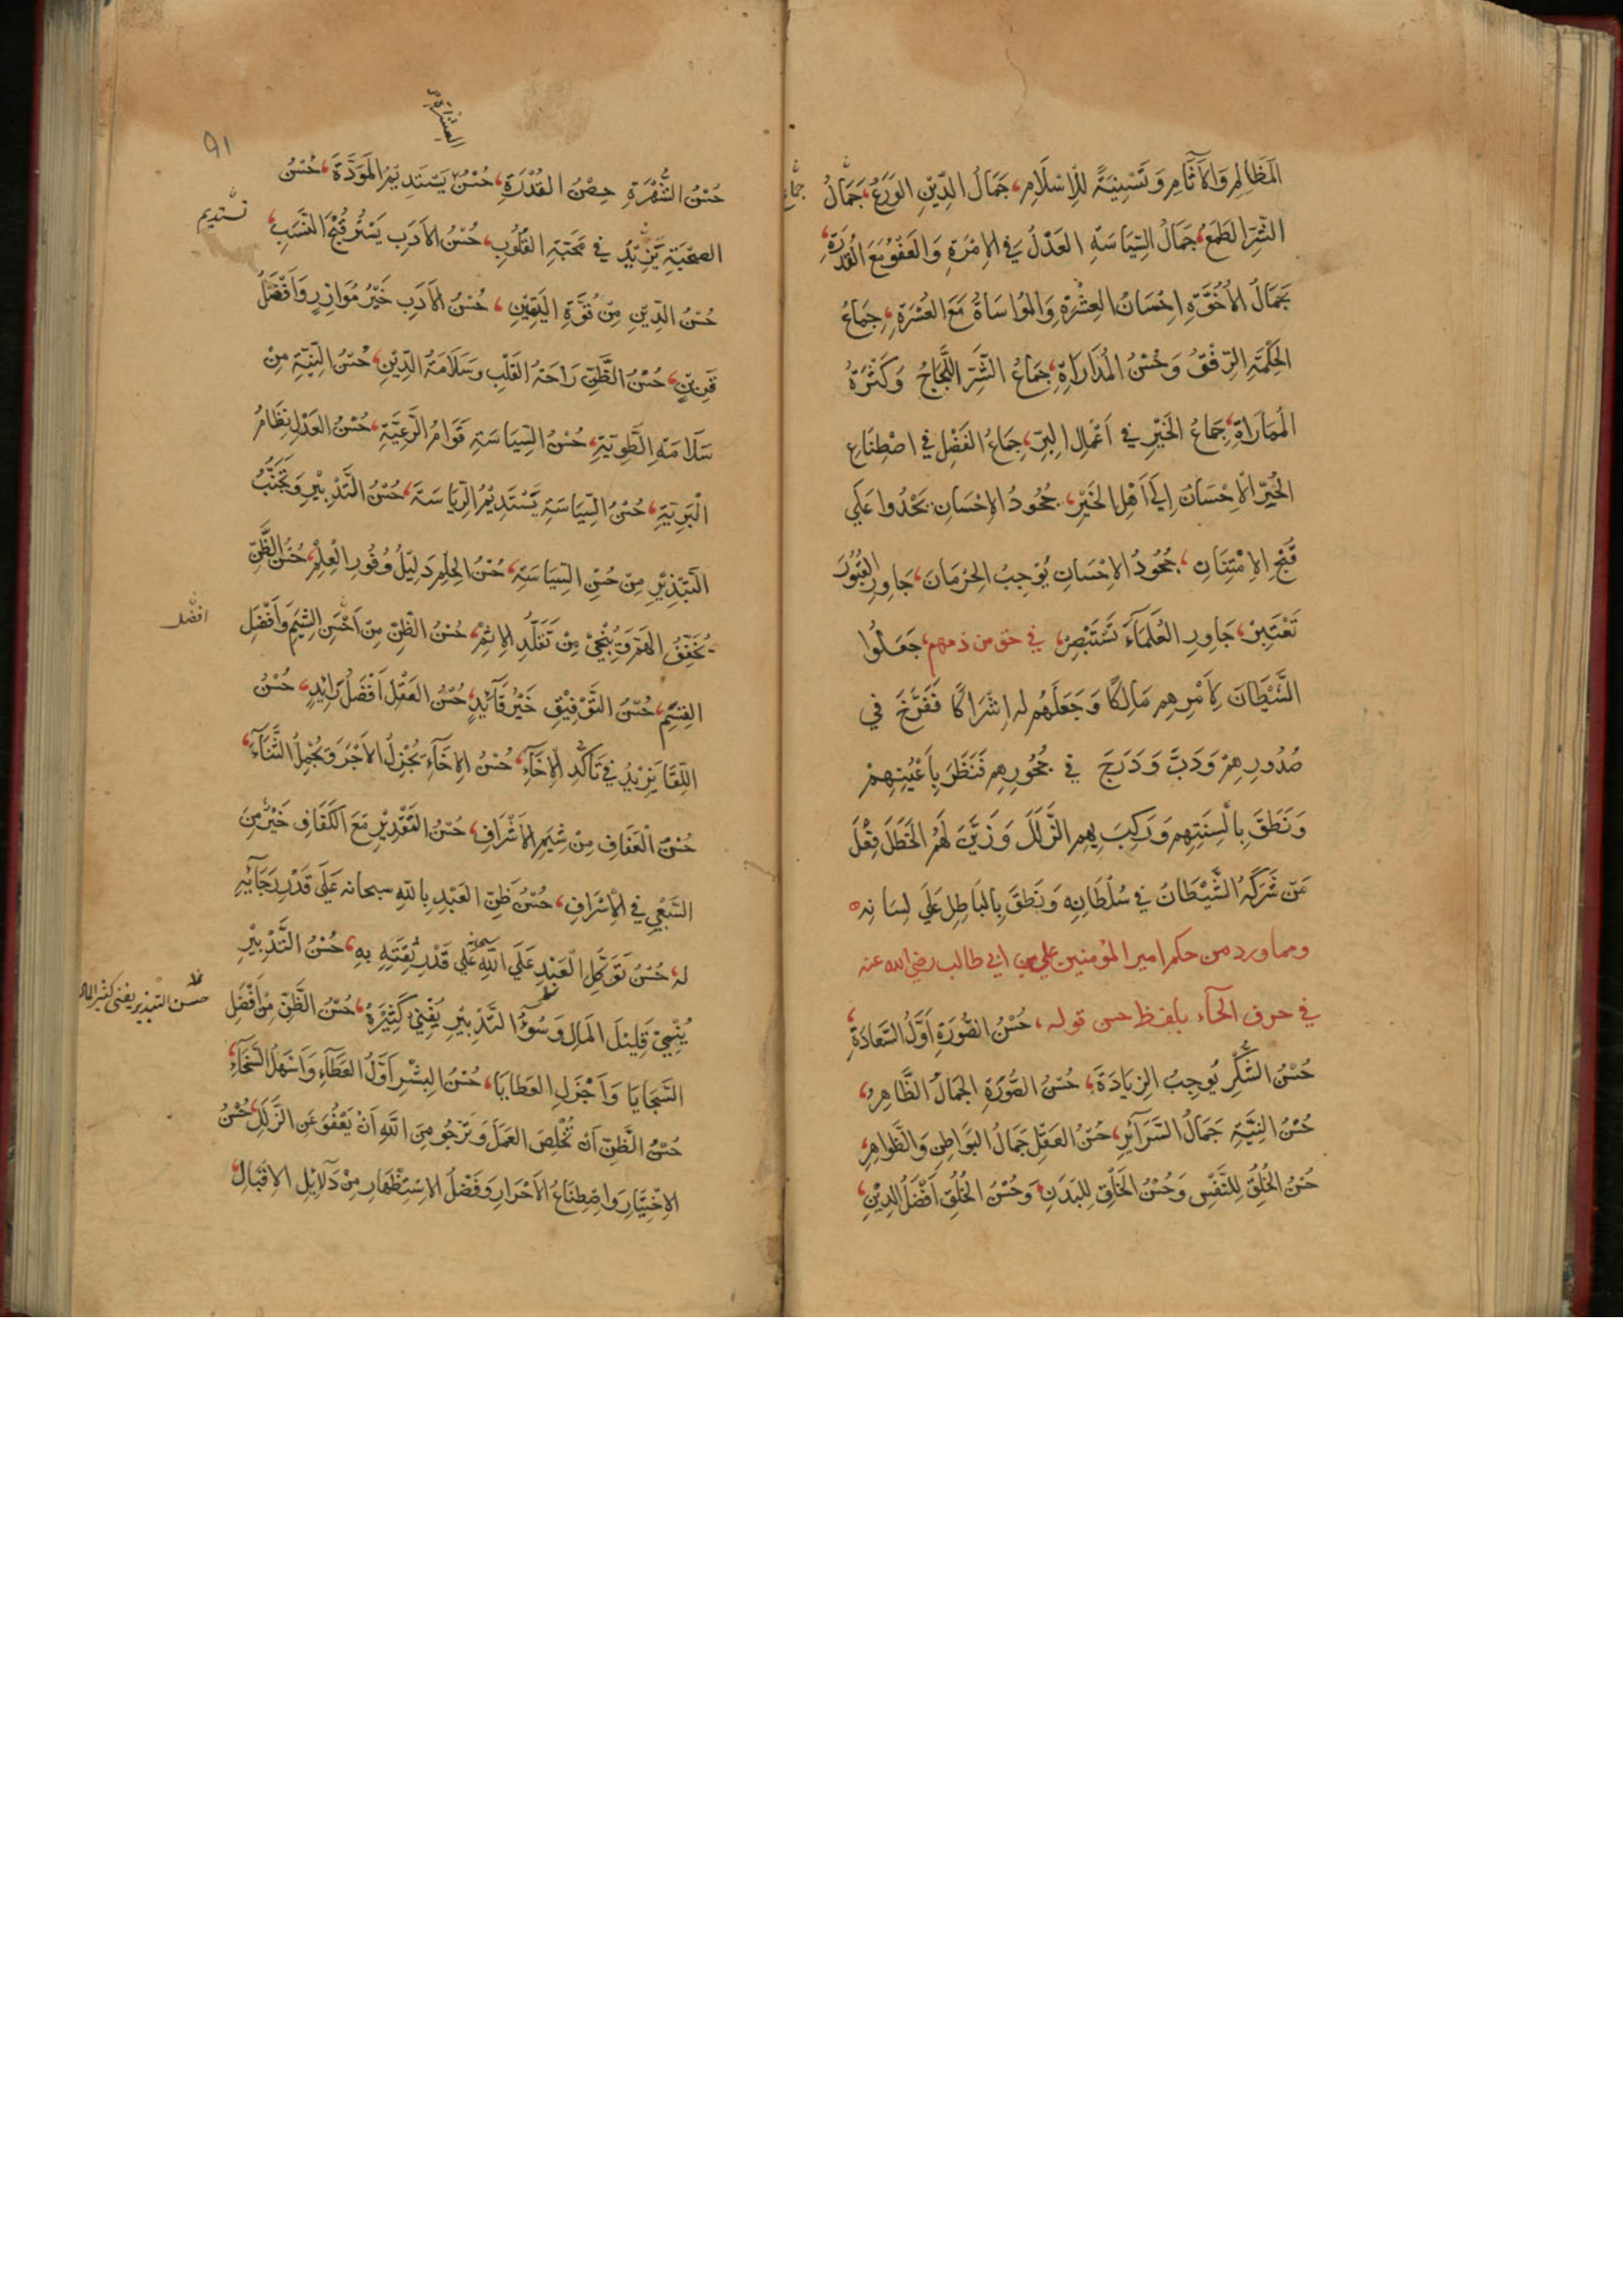 المَظَالِمِ وَالآثَامِ وَتَسْنِيَةً لِلإسْلَامِ، جَمَالُ الدِّيْنِ الوَرَعُ، جَمَالُ
جماع
الشَّرِّ الطَمَعُ، جَمَالُ السِّيَاسَةِ العَدْلُ فِي الإِمْرَةِ وَالعَفْوُ مَعَ القُدْرَةِ،
جَمَالُ الأُخُوَّةِ اِحْسَانُ العِشْرَةِ وَالمُوَاسَاةُ مَعَ العُسْرَةِ، جِمَاعُ
الحِكْمَةِ الرِّفْقُ وَحُسْنُ المُدَارَاةِ، جِمَاعُ الشَّرِّ اللَّجَاجُ وَكَثْرَةُ
المُمَارَاةِ، جِمَاعُ الخَيْرِ فِي اَعْمَالِ البِرِّ، جِمَاعُ الفَضْلِ فِي اصْطِنَاعِ
الحُرِّ وَالإِحْسَانُ اِلَى اَهْلِ الخَيْرِ، جُحُودُ الإِحْسَانِ يَحْدُوا عَلَى
قُبْحِ الاِمْتِنَانِ، جُحُودُ الاِحْسَانِ يُوْجِبُ الحِرْمَانَ، جَاوِرِ القُبُوْرَ
تَعْتَبِرْ، جَاوِرِ العُلَمَآءَ تَسْتَبْصِرْ، في حق من ذمهم، جَعَلُوا
الشَّيْطَانَ لِأَمْرِهِم مَالِكًا وَجَعَلَهُم لهُ اِشْرَاكًا فَفَرَّخَ فِي
صُدُورِهِمْ وَدَبَّ وَدَرَجَ فِي حُجُورِهِم فَنَظَرَ بِاَعْيُنِهِمْ
وَنَطَقَ بِاَلْسِنَتِهِم وَرَكِبَ بِهِم الزَّلَلَ وَزَيَّنَ لَهُم الخَطَلَ فِعْلَ
مَنْ شَرَكَهُ الشَّيْطَانُ فِي سُلْطَانِهِ وَنَطَقَ بِالبَاطِلِ عَلَى لِسَانِه
ومما ورد من حكم امير المؤمنين علي بن ابي طالب رضي الله عنه
في حرف الحآء بلفظ حسن قوله، حُسْنُ الصُّورَةِ اَوَّلُ السَّعَادَةِ،
حُسْنُ الشُّكْرِ يُوجِبُ الزِيَادَةَ، حُسْنُ الصُّورَةِ الجَمَالُ الظَّاهِرُ،
حُسْنُ النِيَّةِ جَمَالُ السَّرَآئِرِ، حُسْنُ العَقْلِ جَمَالُ البَوَاطِنِ وَالظَّوَاهِرِ،
حُسْنُ الخُلُقِ لِلنَّفْسِ وَحُسْنُ الخَلْقِ لِلبَدَنِ وَحُسْنُ الخُلُقِ اَفْضَلُ الدِّيْنِ،
٩١
حُسْنُ الشُّهْرَةِ حِصْنُ القُدْرَةِ، حُسْنُ يَسْتَدِيْمُ المَوَدَّةَ، حُسْنُ
تستديم
الصُحْبَةِ يَزِيْدُ فِي مَحَبَّةِ القُلُوبِ، حُسْنُ الاَدَبِ يَسْتُرُ قُبْحَ النَّسَبِ،
حُسْنُ الدِّيْنِ مِنْ قُوَّةِ اليَقِيْنِ، حُسْنُ الاَدَبِ خَيْرُ مُوَازِرٍ وَاَفْضَلُ
قَرِيْنٍ، حُسْنُ الظَّنِّ رَاحَةُ القَلْبِ وسَلَامَةُ الدِّيْنِ، حُسْنُ النِيَّةِ مِنْ
سَلَامَةِ الطَّوِيَّةِ، حُسْنُ السِّيَاسَةِ قَوَامُ الرَّعِيَّةِ، حُسْنُ العَدْلِ نِظَامُ
الْبَرِيَّةِ، حُسْنُ السِّيَاسَةِ يَسْتَدِيْمُ الرِّيَاسَةَ، حُسْنُ التَّدْبِيْرِ وَتَجَنُّبُ
التَبْذِيْرِ مِنْ حُسْنِ السِيَاسَةِ، حُسْنُ الحِلْمِ دَلِيْلُ وُفُورِ الْعِلْمِ، حُسْنُ الظَّنِّ
يُخَفِّفُ الهَمَّ وَيُنْجِي مِنْ تَقَلُّدِ الاِثْمِ، حُسْنُ الظَنِّ مِنْ اَحْسَنِ الشِّيَمِ وَاَفْضَلِ
افضل
القِسَمِ، حُسْنُ التَّوْفِيْقِ خَيْرُ قَآئِدٍ، حُسْنُ العَقْلِ اَفْضَلُ رَائِدٍ، حُسْنُ
اللِّقَا يَزِيْدُ فِي تَأَكُّدِ الاِخَآءِ، حُسْنُ الاِخَآءِ يُجْزِلُ الاَجْرَ وَيُجْمِلُ الثَّنَآءَ،
حُسْنُ الْعَفَافِ مِنْ شِيَمِ الاَشْرَافِ، حُسْنُ التَقْدِيْرِ مَعَ الكَفَافِ خَيْرٌ مِنَ
السَّعْيِ فِي الاِسْرَافِ، حُسْنُ ظَنِّ العَبْدِ بِاللّهِ سبحانه عَلَى قَدْرِ رَجَآئِهِ
لهُ، حُسْنُ تَوَكُّلِ العَبْدِ عَلَى اللّهِ عَلَى قَدْرِ ثِقَتِهِ بِهِ، حُسْنُ التَّدْبِيْرِ
يُنْمِيْ قَلِيْلَ المَالِ وَسُوْءُ التَّدْبِيْرِ يُفْنِيْ كَثِيْرَهُ، حُسْنُ الظَّنِّ مِنْ اَفْضَلِ
حسن التبذير يفنى كثير المال
السَّجَايَا وَاَجْزَلِ العَطَايَا، حُسْنُ البِشْرِ اَوَّلُ العَطَآءِ وَاَسْهَلُ السَّخَآءِ،
حُسْنُ الظَّنِّ اَنْ تُخْلِصَ العَمَلَ وَتَرْجُو مِنَ اللّهِ اَنْ يَعْفُوَ عَنِ الزَّلَلِ، حُسْنُ
الاِخْتِيَارِ وَاصْطِنَاعُ الاَحْرَارِ وَفَضْلُ الاِسْتِظْهَارِ مِنْ دَلَآئِلِ الاِقْبَالِ،